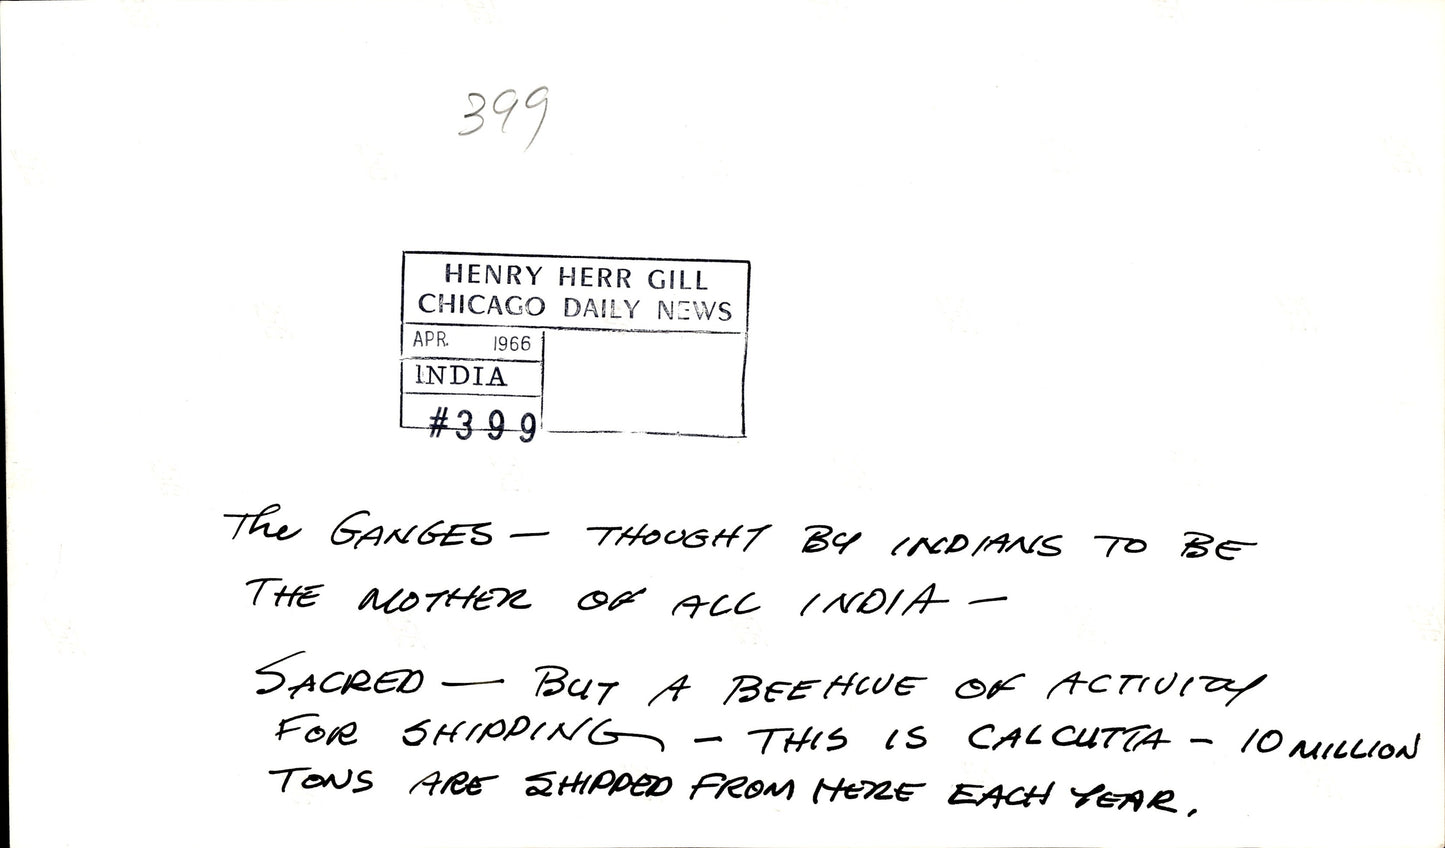 399
HENRY HERR GILL
CHICAGO DAILY NEWS
APR. 1966
INDIA
#399
The GANGES — THOUGHT BY INDIANS TO BE
THE MOTHER OF ALL INDIA —
SACRED — BUT A BEEHIVE OF ACTIVITY
FOR SHIPPING — THIS IS CALCUTTA — 10 MILLION
TONS ARE SHIPPED FROM HERE EACH YEAR.